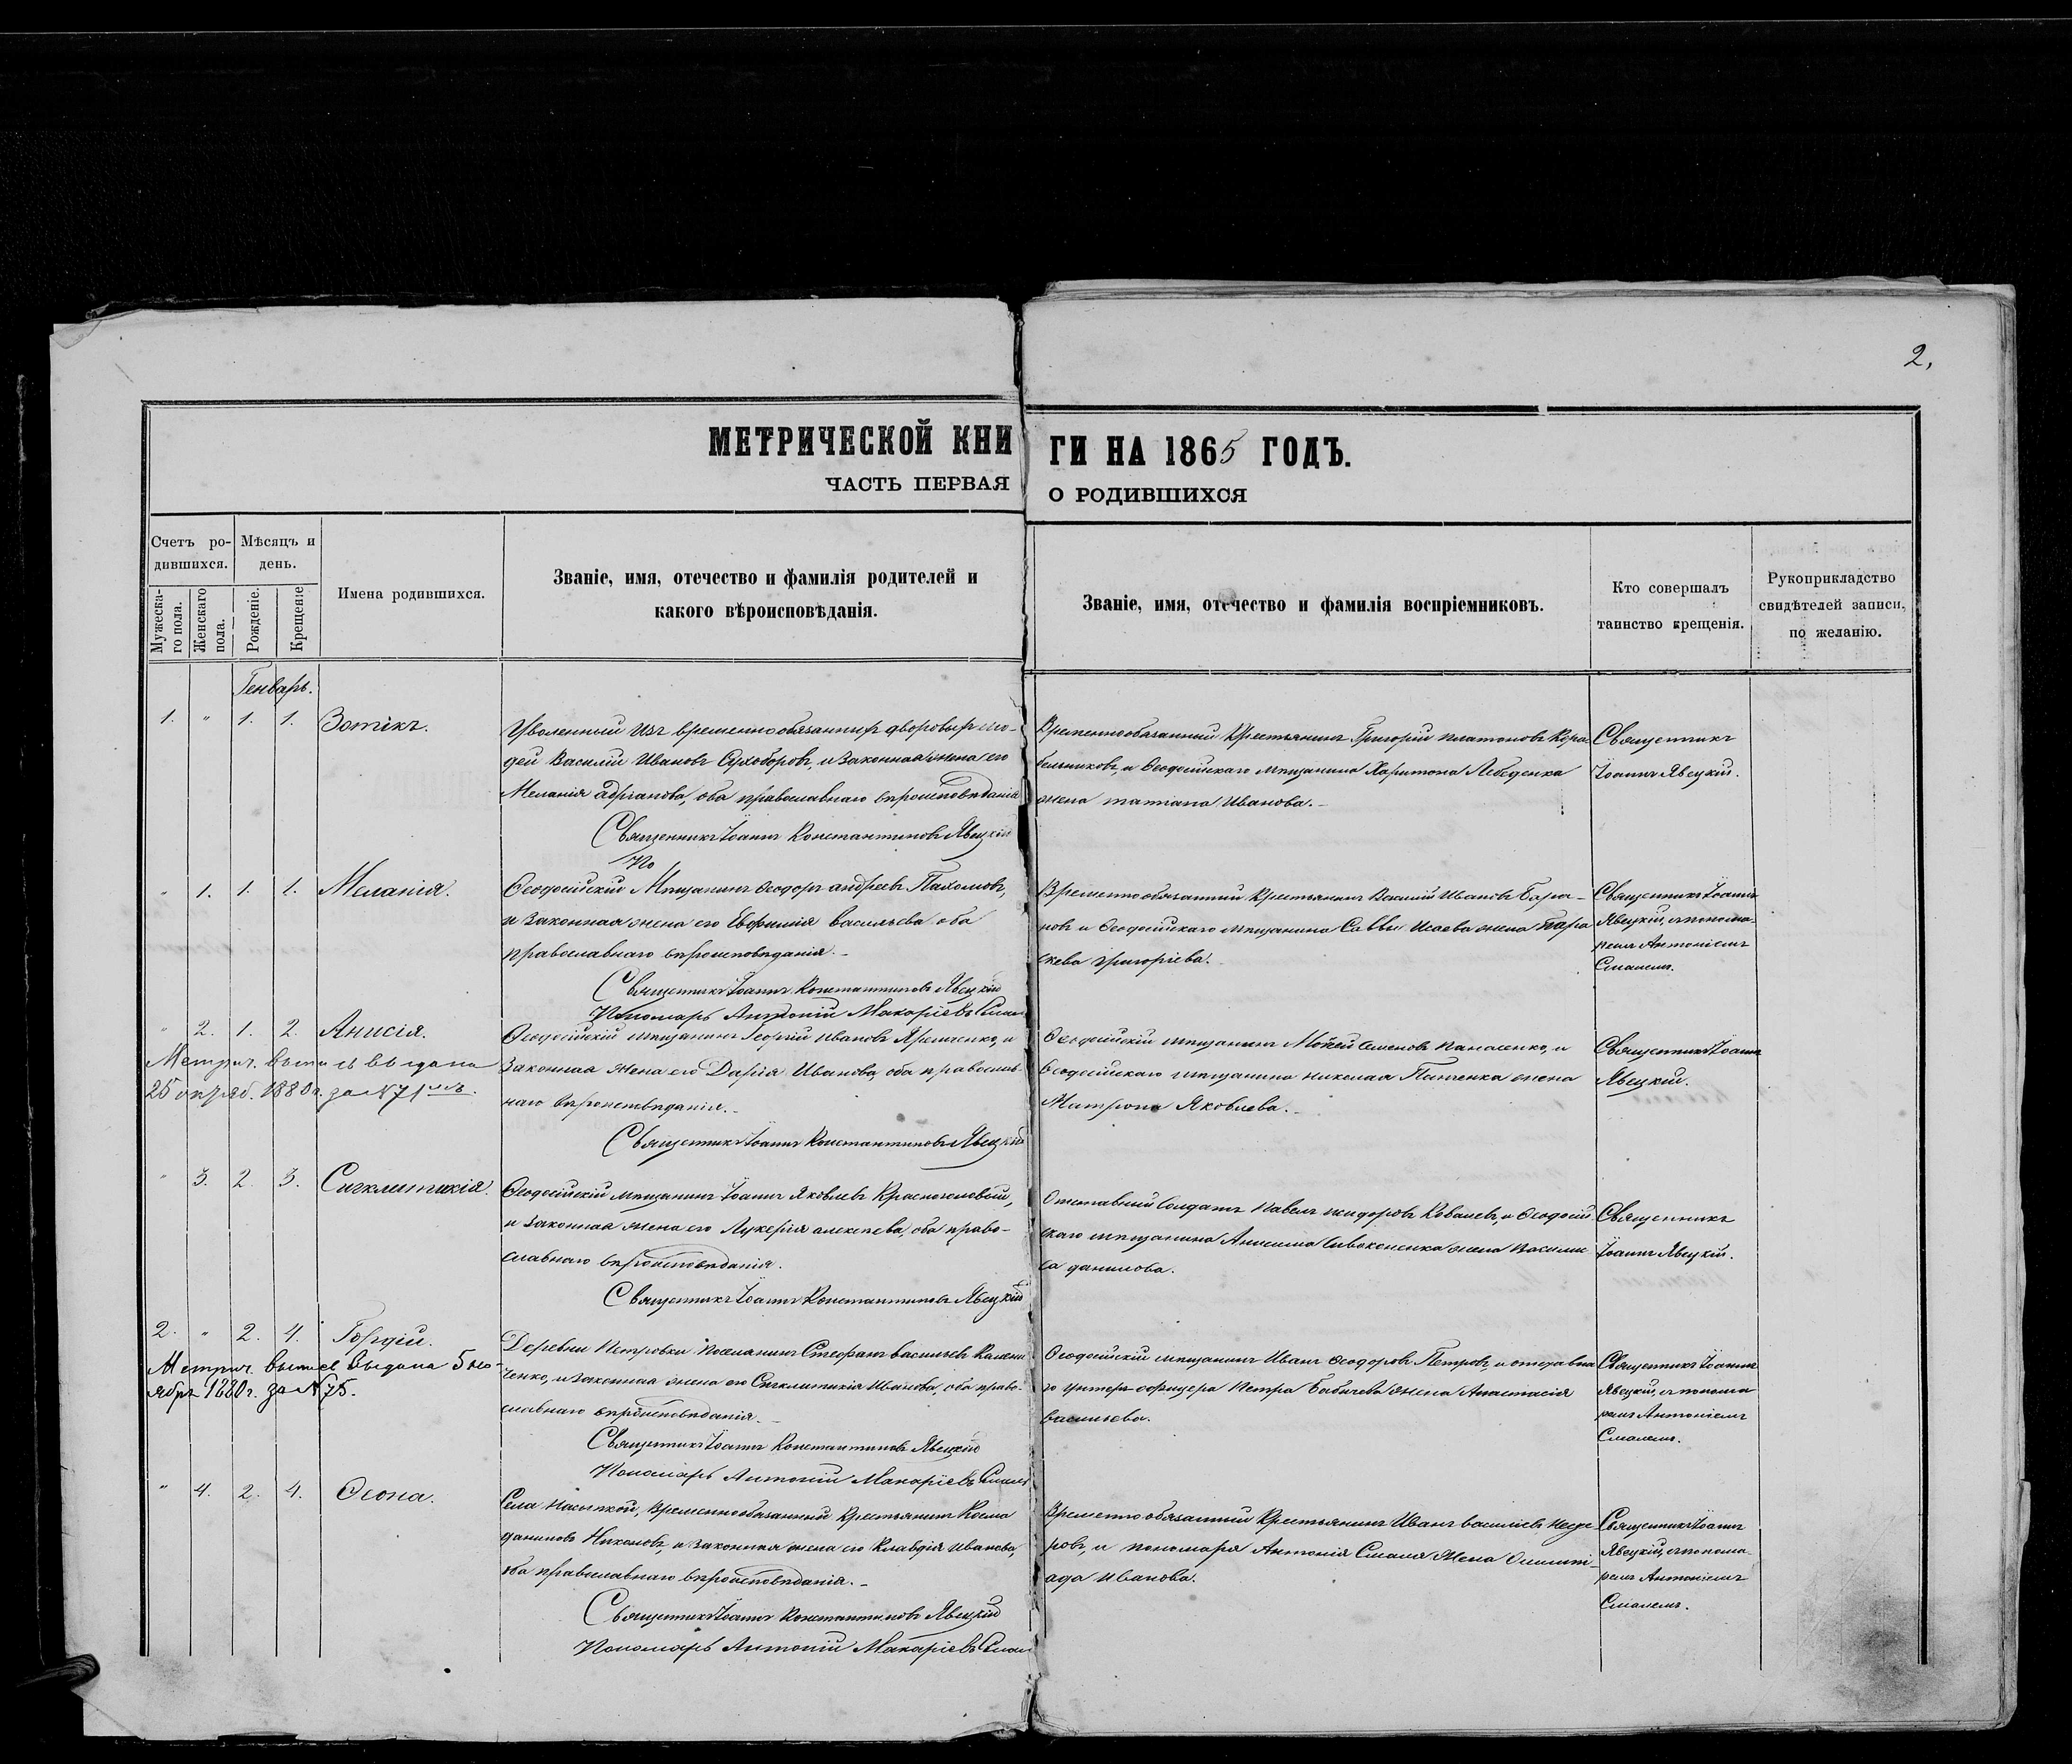 2.
МЕТРИЧЕСКОЙ КНИ ГИ НА 1865 ГОДЪ.
ЧАСТЬ ПЕРВАЯ О РОДИВШИХСЯ
Счетъ ро-
дившихся.
Мужеска-
го пола.
Женскаго
пола.
Мѣсяцъ и
день.
Рожденіе.
Крещеніе
Имена родившихся.
Званіе, имя, отечество и фамилія родителей и
какого вѣроисповѣданія.
Званіе, имя, отечество и фамилія воспріемниковъ.
Кто совершалъ
таинство крещенія.
Рукоприкладство
свидѣтелей записи,
по желанію.
Генварь.
1. " 1. 1. Зотікъ.
Уволенный изъ временнообязанныхъ дворовыхъ лю-
дей Василий Ивановъ Сухоборовъ, и Законная жена его
Меланія адріанова, оба православнаго вѣроисповѣданія
Священникъ Іоаннъ Константиновъ Явецкій
По
Временнообязанный Крестьянинъ Григорій платоновъ Кора-
бельниковъ, и Ѳеодосійскаго мѣщанина Харитона Лебеденка
жена татіана Иванова.
Священникъ
Іоаннъ Явецкій.
" 1. 1. 1. Меланія.
Ѳеодосійскій Мѣщанинъ Ѳеодоръ андреевъ Пахомовъ,
и Законная жена его Евфимія васильева оба
православнаго вѣроисповѣданія.
Священникъ Іоаннъ Константиновъ Явецкій
Пономарь Антоній Макаріевъ Смаль
Временнообязанный Крестьянинъ Василій Ивановъ
и Ѳеодосійскаго мѣщанина Саввы Исаева жена Пара
скева григоріева.
Священникъ Іоаннъ
Явецкій, съ понома-
ремъ Антоніемъ
Смалемъ.
" 2. 1. 2. Анисія.
Метрич. выпись выдана
25 октяб. 1880 г. за №71
Ѳеодосійскій мѣщанинъ Георгій ивановъ Яремченко, и
Законная жена его Дарія Иванова, оба православ-
наго вѣроисповѣданія.
Священникъ Іоаннъ Константиновъ Явецкій
Ѳеодосійскій мѣщанинъ Моѵсей Семеновъ панасенко, и
Ѳеодосійскаго мѣщанина николая Панченка жена
Матрона Яковлева.
Священникъ Іоаннъ
Явецкій.
" 3. 2. 3. Сигклитикія.
Ѳеодосійскій мѣщанинъ Іоаннъ Яковлевъ Красноголовый,
и Законная жена его Лукерія алексѣева, оба право-
славнаго вѣроисповѣданія.
Священникъ Іоаннъ Константиновъ Явецкій
Отставный Солдатъ павелъ исидоровъ Ковалевъ, и Ѳеодосій
скаго мѣщанина Анисима Сивоконенка жена Васили
са данилова.
Священникъ
Іоаннъ Явецкій.
2. " 2. 4. Гордій.
Метрич. выпись выдана 5 но-
ября 1880 г. за №75.
Деревни Петровки поселянинъ Стефанъ васильевъ
ченко, и законная жена его Сигклитикія Иванова, оба право-
славнаго вѣроисповѣданія.
Священникъ Іоаннъ Константиновъ Явецкій
Пономарь Антоній Макаріевъ Смаль
Ѳеодосійскій мѣщанинъ Иванъ Ѳеодоровъ Петровъ, и отставна
го унтеръ офицера петра Бабичева жена Анастасія
васильева.
Священникъ Іоаннъ
Явецкій, съ понома
ремъ Антоніемъ
Смалемъ.
" 4. 2. 4. Ѳеона.
Села насыпкой, временнообязанный Крестьянинъ Косма
даниловъ Никоновъ, и законная жена его Клавдія иванова,
оба православнаго вѣроисповѣданія.
Священникъ Іоаннъ Константиновъ Явецкій
Пономарь Антоній Макаріевъ Смаль
Временнообязанный Крестьянинъ Иванъ василіевъ
ровъ, и пономаря Антонія Смаля жена Олимпі-
ада иванова.
Священникъ Іоаннъ
Явецкій, съ понома-
ремъ Антоніемъ
Смалемъ.